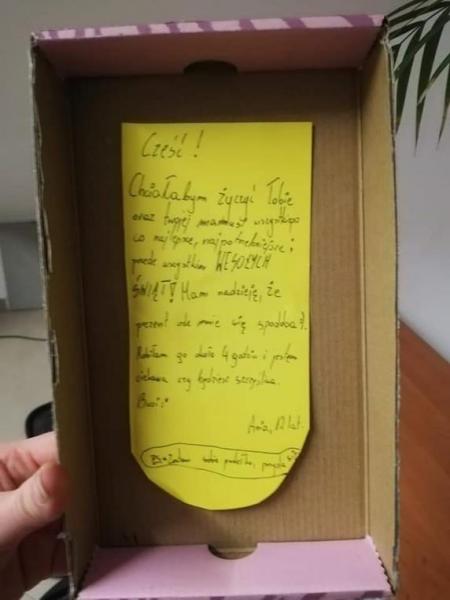 Cześć!
Chciałabym życzyć Tobie
oraz twojej mamusi wszystkiego
co najlepsze, najpotrzebniejsze i
przede wszystkim WESOŁYCH
ŚWIĄT! Mam nadzieję, że
prezent ode mnie się spodoba.
Robiłam go około 4 godzin i jestem
ciekawa czy będziesz szczęśliwa.
Buzi
Ania, 12 lat.
PS Zostaw sobie pudełko,